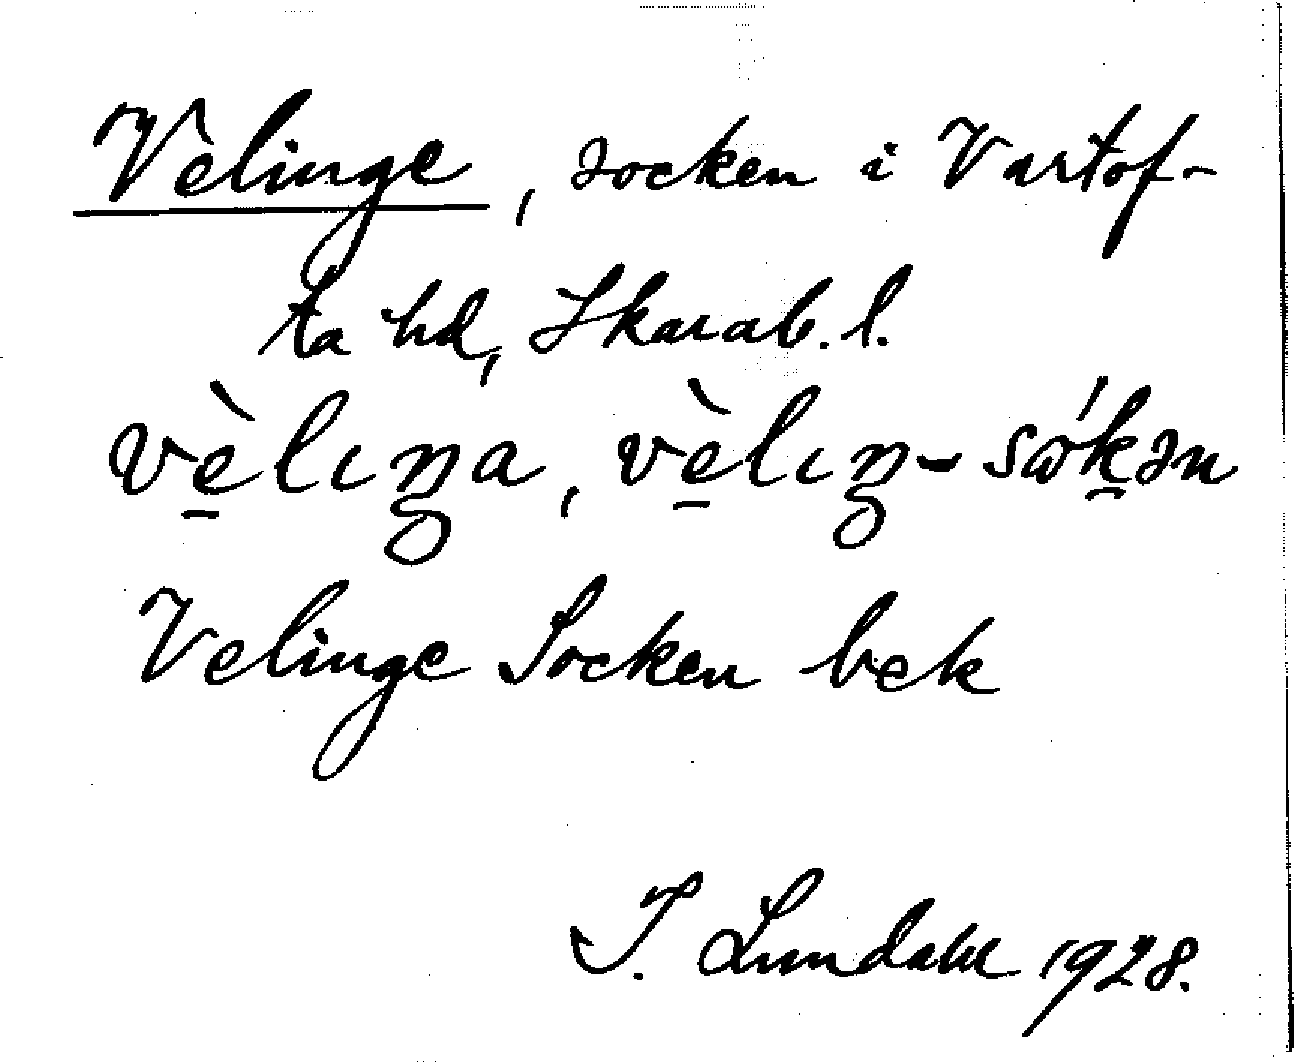 Velinge, socken i Vartof-
ta hd, Skarab. l.
vè̱lıŋa, vè̱lıŋ-sǿk̯ən
Velinge Socken bek
I. Lundahl 1928.